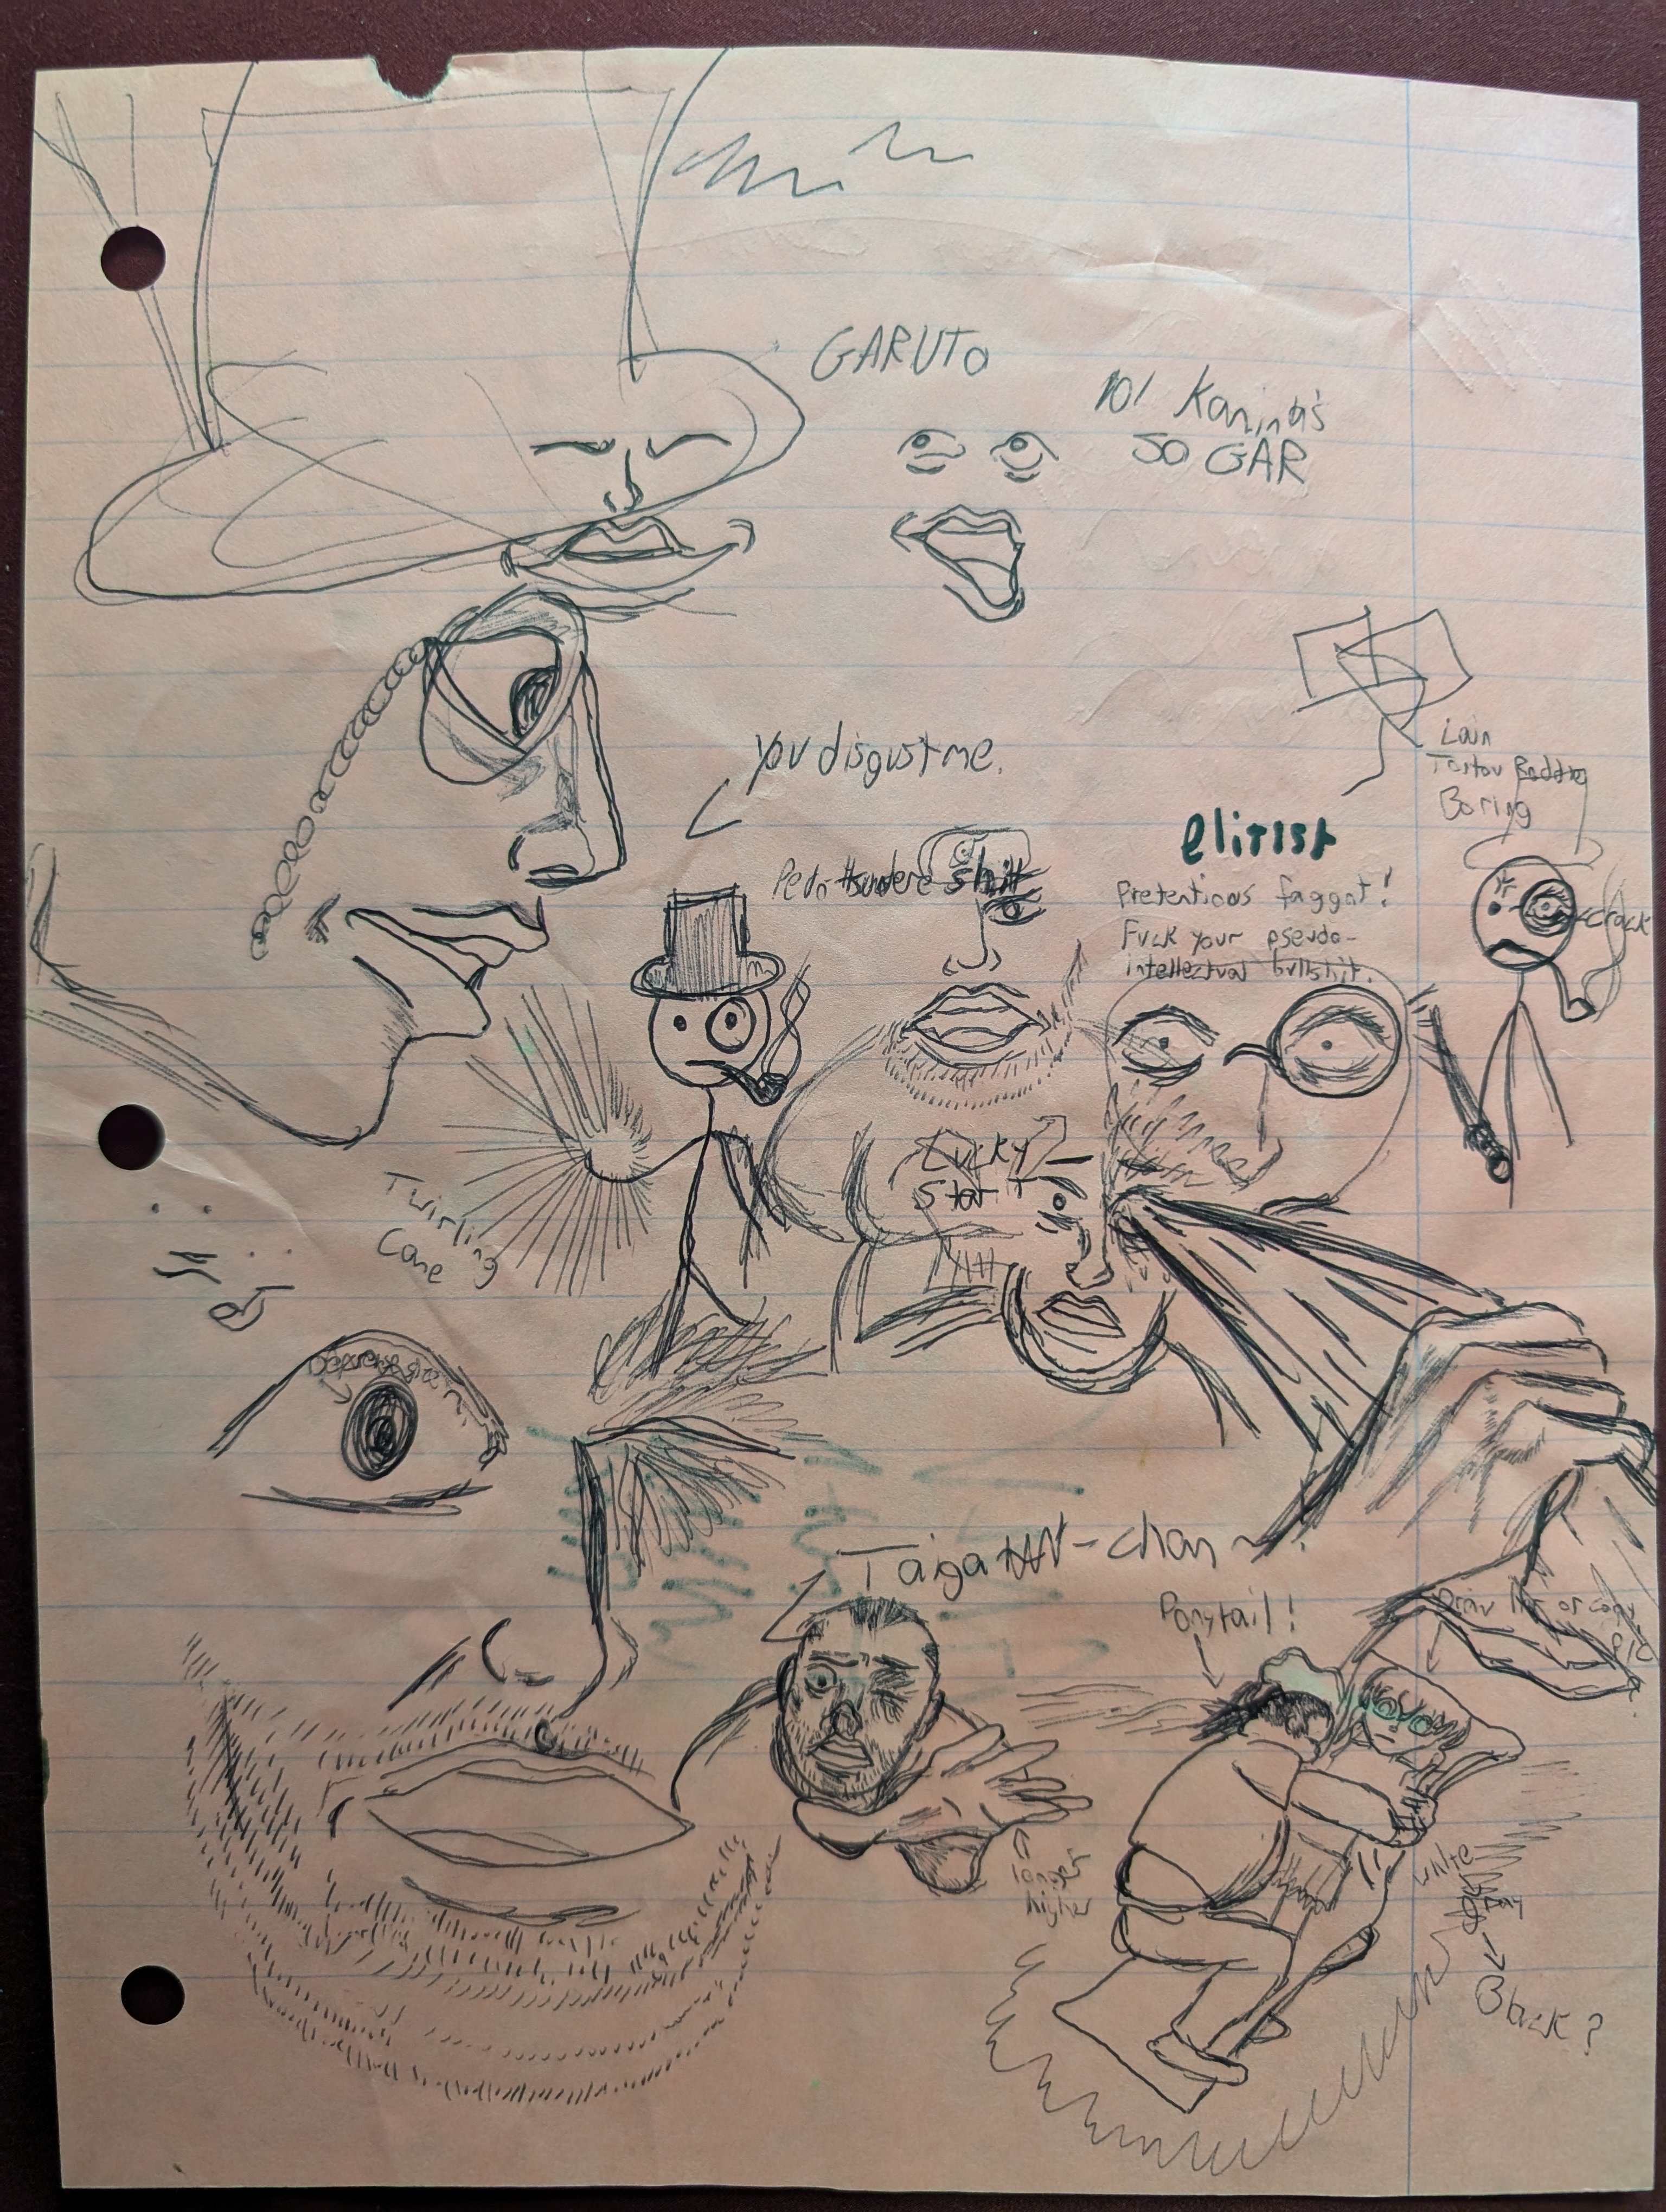 GARUTO
lol Kamina's
SO GAR
you disgust me.
Lain
Boring
elitist
Pedo tsundere shit
Pretentious faggot!
Fuck your pseudo-
intellectual bullshit.
crack
Lucky
Star
Twirling
Cane
Taiga -chan ~
Ponytail!
Draw her or copy
pic
longer
higher
white
Black?